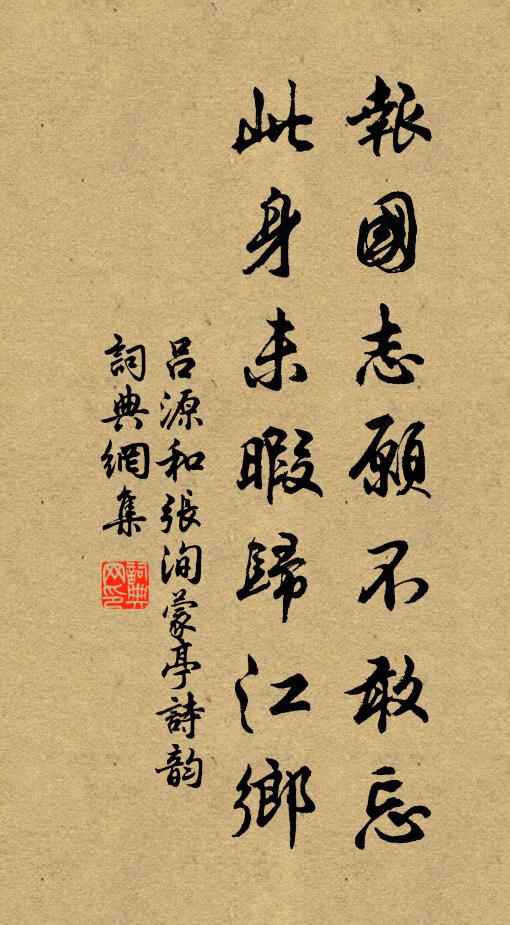 報國志願不敢忘
此身未暇歸江鄉
吕源和張洵蒙亭詩韵
詞典網集
詞典网印